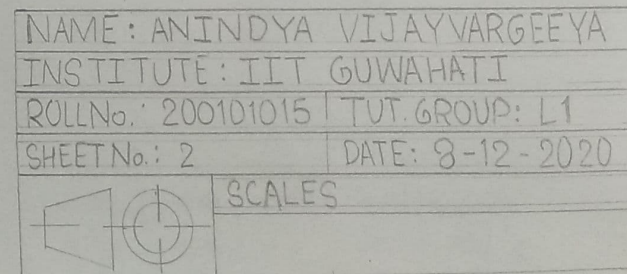 NAME: ANINDYA VIJAYVARGEEYA
INSTITUTE: IIT GUWAHATI
ROLLNo.: 200101015 TUT. GROUP: L1
SHEET No.: 2 DATE: 8-12-2020
SCALES